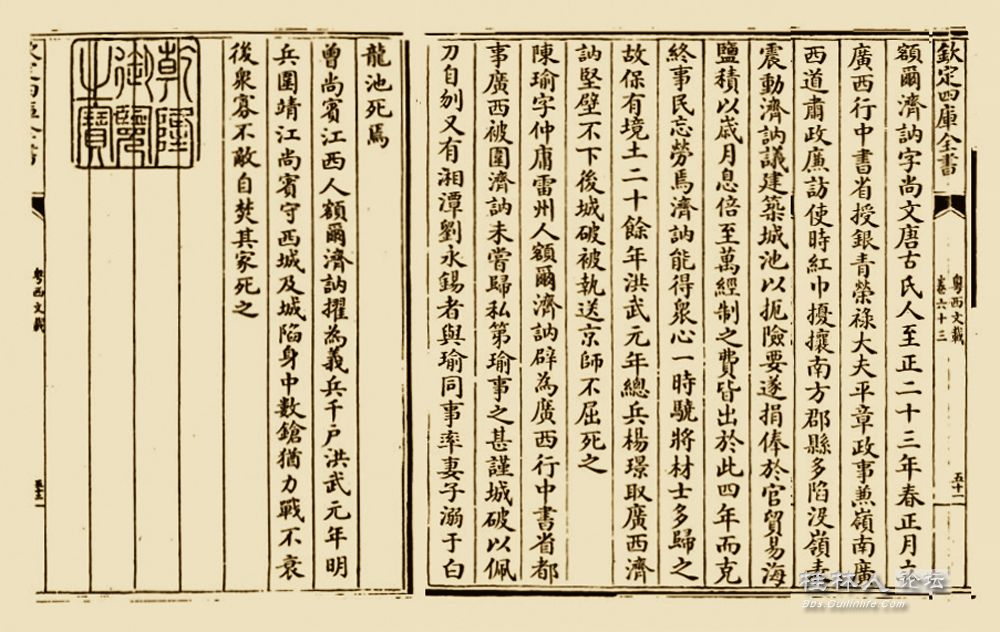 欽定四庫全書
粤西文載
卷六十三
五十一
額爾濟訥字尚文唐古氏人至正二十三年春正月立
廣西行中書省授銀青榮祿大夫平章政事兼嶺南廣
西道肅政廉訪使時紅巾擾攘南方郡縣多陷没嶺表
震動濟訥議建築城池以扼險要遂捐俸於官貿易海
鹽積以歲月息倍至萬經制之費皆出於此四年而克
終事民忘勞焉濟訥能得衆心一時驍將材士多歸之
故保有境土二十餘年洪武元年總兵楊璟取廣西濟
訥堅壁不下後城破被執送京師不屈死之
陳瑜字仲庸雷州人額爾濟訥辟為廣西行中書省都
事廣西被圍濟訥未嘗歸私第瑜事之甚謹城破以佩
刀自刎又有湘潭劉永錫者與瑜同事率妻子溺于白
龍池死焉
曾尚賓江西人額爾濟訥擢為義兵千户洪武元年明
兵圍靖江尚賓守西城及城陷身中數鎗猶力戰不衰
後衆寡不敵自焚其家死之
乾隆
御覽
之寶
粤西文載
桂林人论坛
Bbs.Guilinlife.com